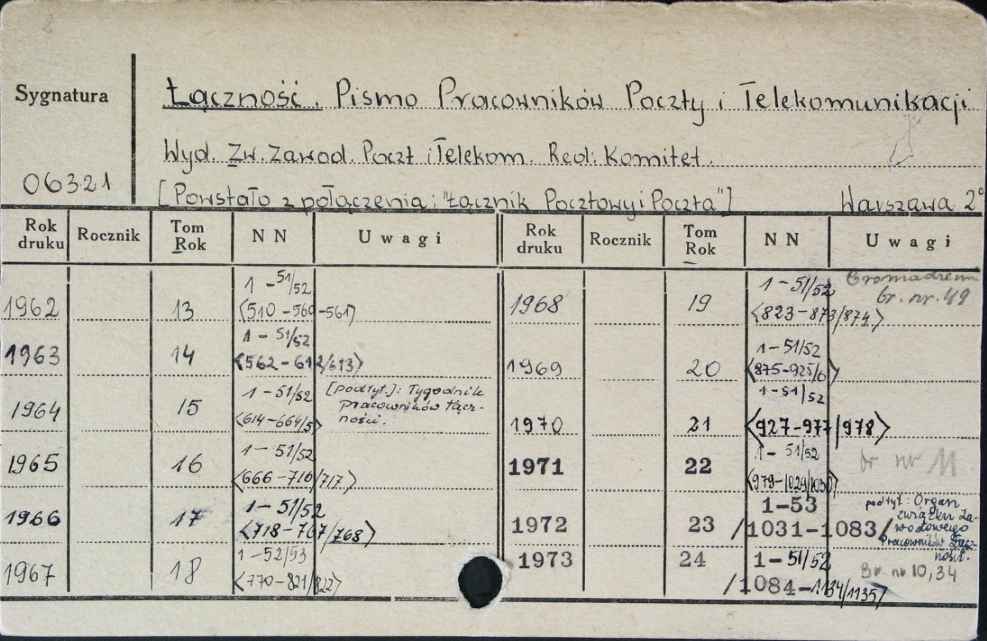 Sygnatura
Łączność. Pismo Pracowników Poczty i Telekomunikacji
Wyd. Zw. Zawod. Poczt i Telekom. Red: Komitet.
06321
[Powstało z połączenia: "Łącznik Pocztowy i Poczta"] Warszawa 2°
Rok druku Rocznik Tom Rok NN Uwagi Rok druku Rocznik Tom Rok NN Uwagi
1962 13 1-51/52 <510-560-561>
1963 14 1-51/52 <562-612/613>
1964 15 1-51/52 <614-664/5> [podtyt.]: Tygodnik pracowników łączności.
1965 16 1-51/52 <666-716/717>
1966 17 1-51/52 <718-767/768>
1967 18 1-52/53 <770-821/822>
1968 19 1-51/52 <823-873/874> br. nr. 49
1969 20 1-51/52 <875-925/6>
1970 21 1-51/52 <927-977/978>
1971 22 1-51/52 <979-1029/1030> br nr 11
1972 23 1-53 /1031-1083/ podtyt: Organ związku zawodowego Pracowników Łączności.
1973 24 1-51/52 /1084-1134/1135/ Br. nr 10,34